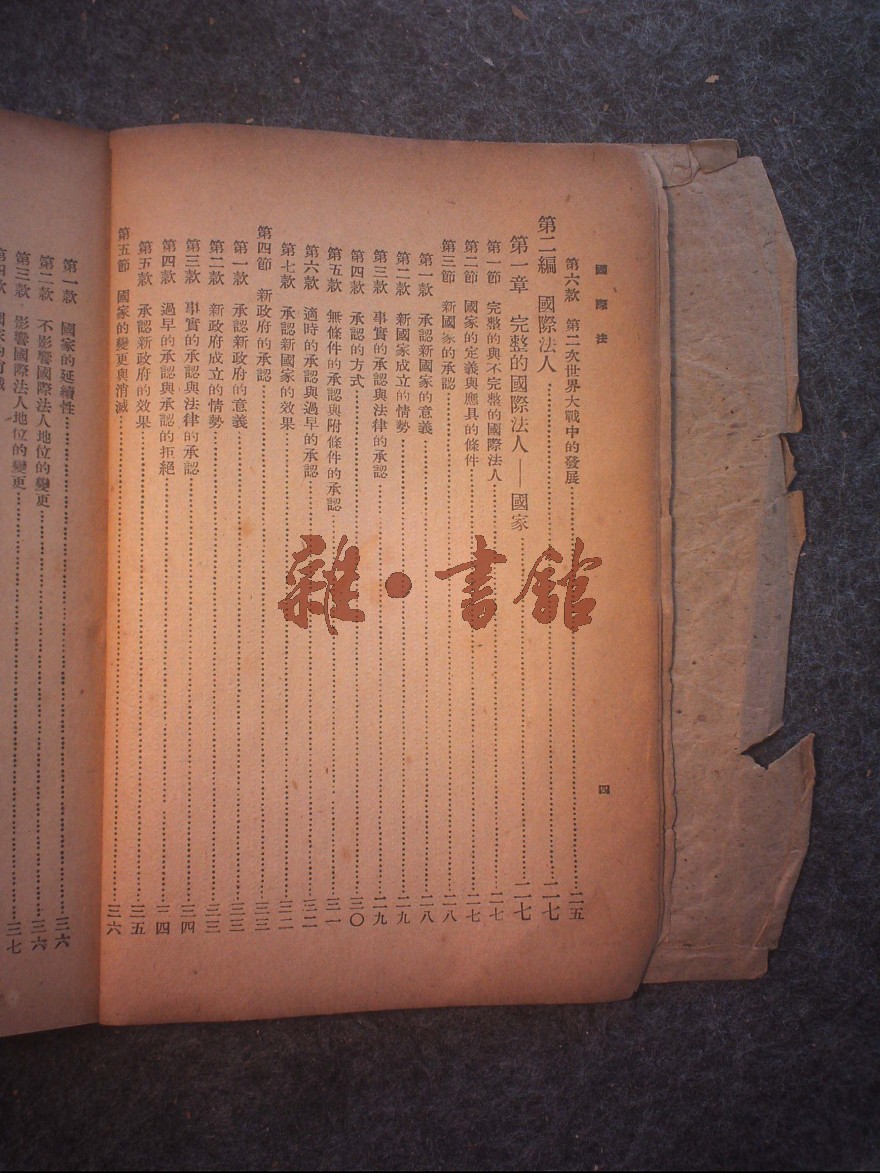 國際法
四
第六款 第二次世界大戰中的發展……二五
第二編 國際法人……二七
第一章 完整的國際法人——國家……二七
第一節 完整的與不完整的國際法人……二七
第二節 國家的定義與應具的條件……二七
第三節 新國家的承認……二八
第一款 承認新國家的意義……二八
第二款 新國家成立的情勢……二九
第三款 事實的承認與法律的承認……二九
第四款 承認的方式……三〇
第五款 無條件的承認與附條件的承認……三一
第六款 適時的承認與過早的承認……三二
第七款 承認新國家的效果……三二
第四節 新政府的承認……三三
第一款 承認新政府的意義……三三
第二款 新政府成立的情勢……三三
第三款 事實的承認與法律的承認……三四
第四款 過早的承認與承認的拒絕……三四
第五款 承認新政府的效果……三五
第五節 國家的變更與消滅……三六
第一款 國家的延續性……三六
第二款 不影響國際法人地位的變更……三六
第三款 影響國際法人地位的變更……三七
雜·書館